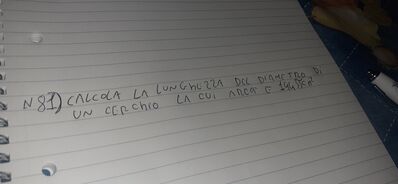 N 81) CALCOLA LA LUNGHEZZA DEL DIAMETRO DI
UN CERCHIO LA CUI AREA È